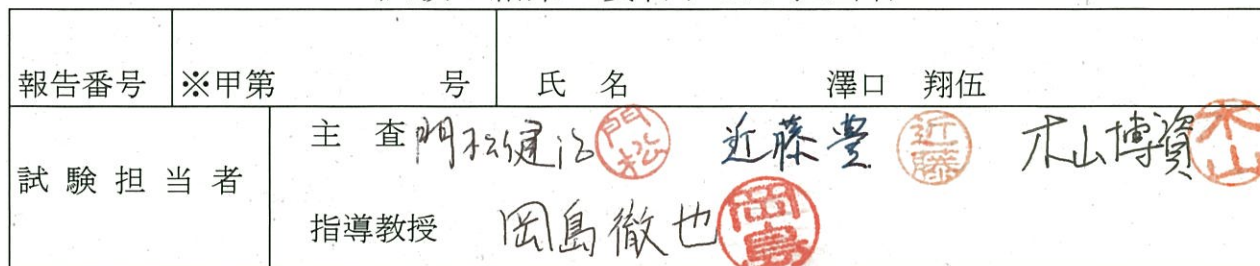 報告番号 ※甲第 号 氏名 澤口 翔伍
試験担当者
主査 門松健治 門松 近藤豊 近藤 木山博資 木山
指導教授 岡島徹也 岡島